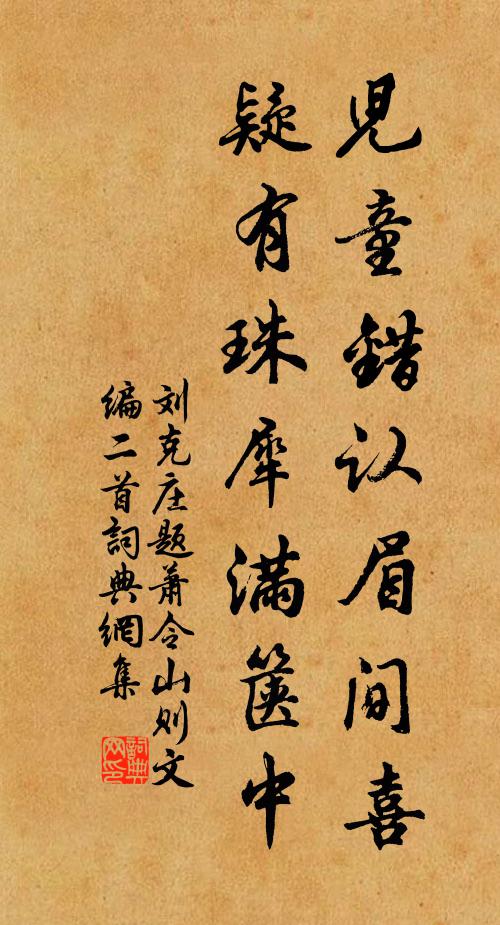 兒童錯认眉间喜
疑有珠犀满箧中
刘克庄题萧令山则文
编二首詞典網集
詞典网印